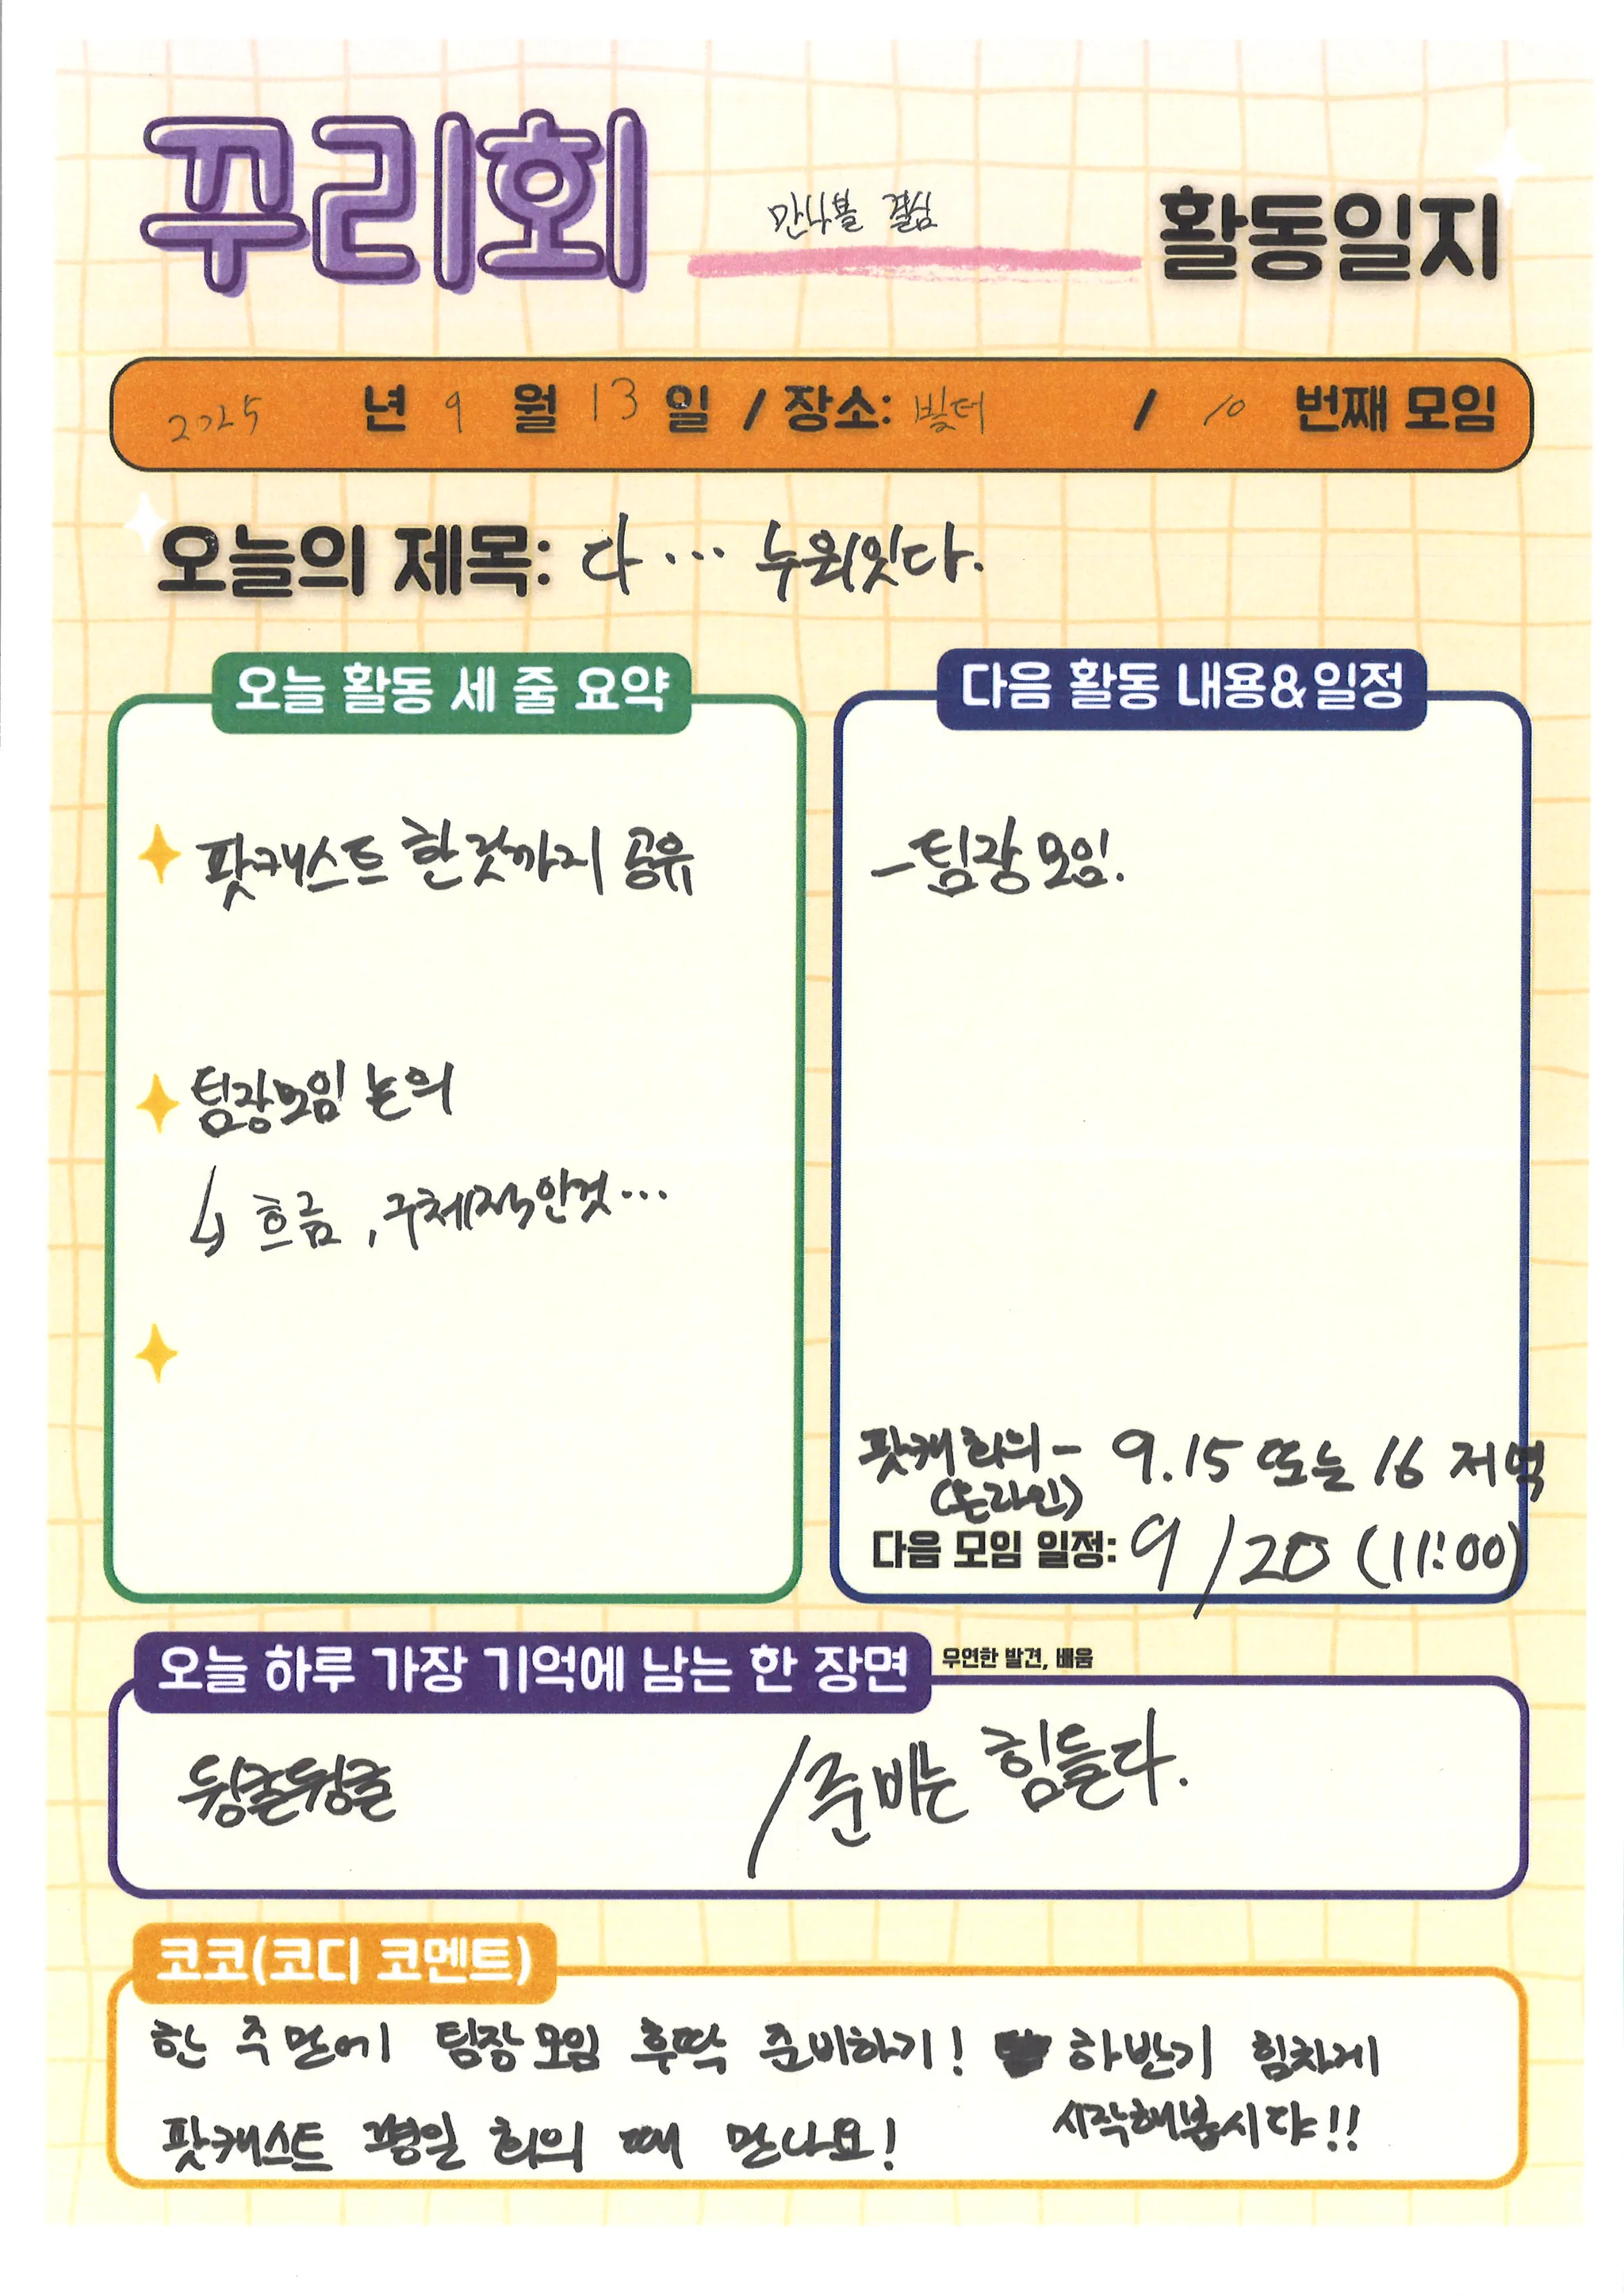 꾸리회 만나볼 결심 활동일지
2025 년 9 월 13 일 / 장소: 빛터 / 10 번째 모임
오늘의 제목: 다... 누워있다.
오늘 활동 세 줄 요약
팟캐스트 한것까지 공유
팀장모임 논의
↳ 흐름, 구체적안것...
다음 활동 내용&일정
-팀장모임.
팟캐 회의 - 9.15 또는 16 저녁
(온라인)
다음 모임 일정: 9/20 (11:00)
오늘 하루 가장 기억에 남는 한 장면 우연한 발견, 배움
뒹굴뒹굴 / 준비는 힘들다.
코코(코디 코멘트)
한 주만에 팀장모임 후딱 준비하기! 하반기 힘차게
시작해봅시다!!
팟캐스트 평일 회의 때 만나요!